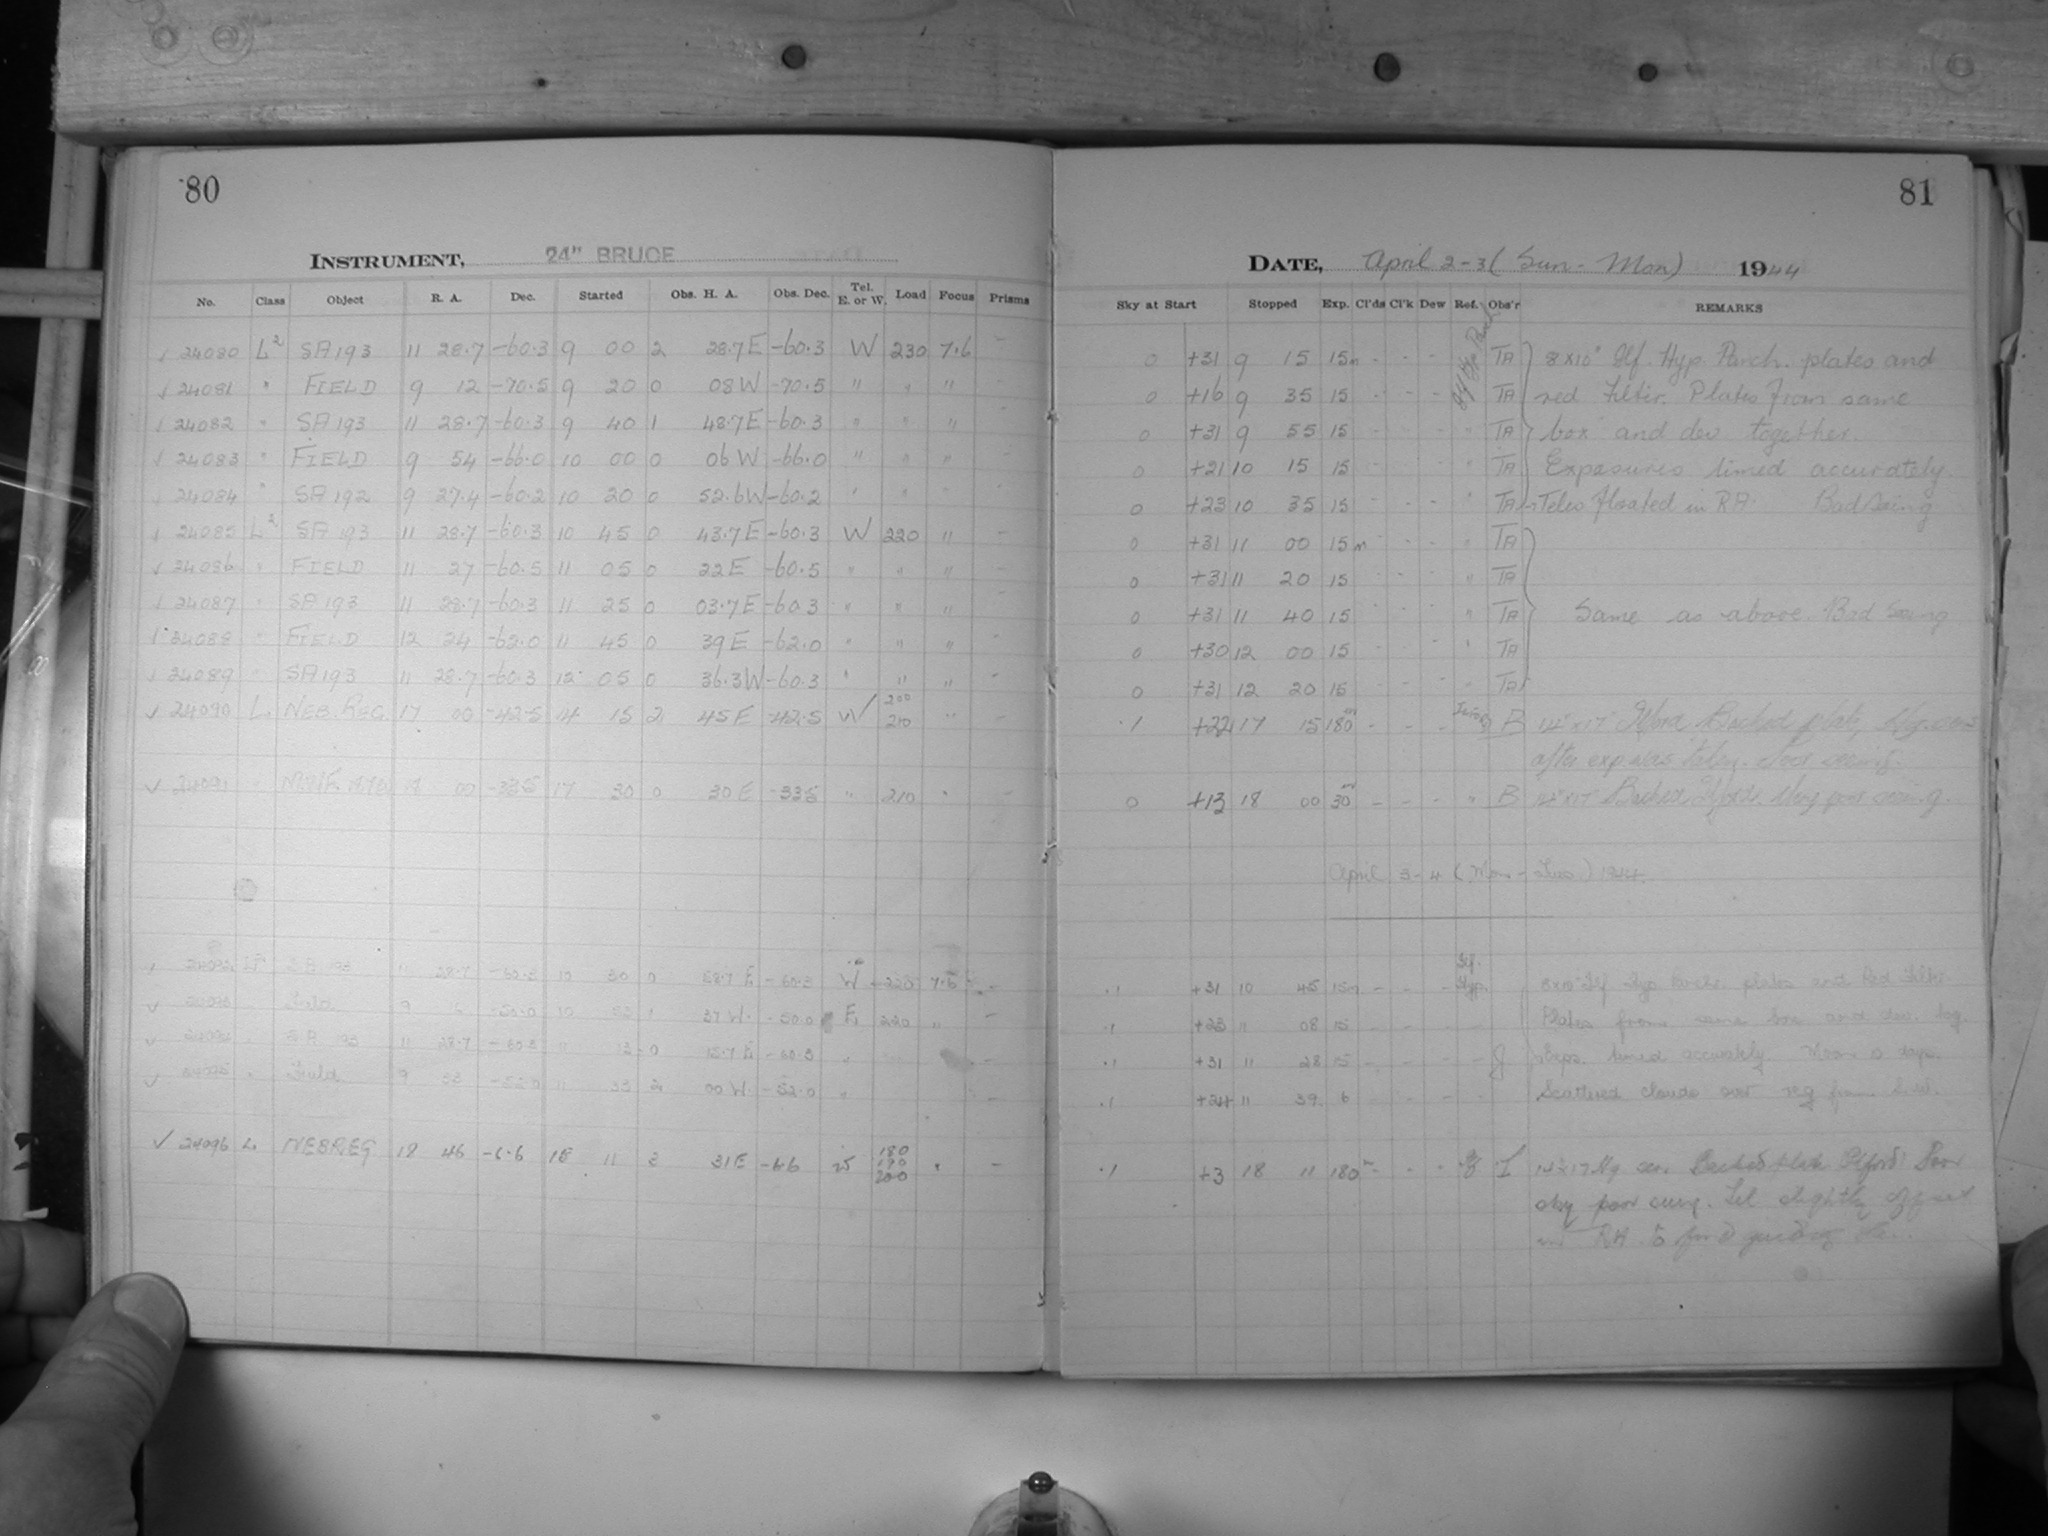 80
INSTRUMENT, 24" BRUCE
No. Class Object R. A. Dec. Started Obs. H. A. Obs. Dec. Tel. E. or W. Load Focus Prisms
√ 24080 L² SA 193 11 28.7 -60.3 9 00 2 28.7 E -60.3 W 230 7.6 -
√ 24081 " FIELD 9 12 -70.5 9 20 0 08 W -70.5 " " "
√ 24082 " SA 193 11 28.7 -60.3 9 40 1 48.7 E -60.3 " " "
√ 24083 " FIELD 9 54 -66.0 10 00 0 06 W -66.0 " " "
√ 24084 " SA 192 9 27.4 -60.2 10 20 0 52.6 W -60.2 " " "
√ 24085 L² SA 193 11 28.7 -60.3 10 45 0 43.7 E -60.3 W 220 " -
√ 24086 " FIELD 11 27 -60.5 11 05 0 22 E -60.5 " " " -
√ 24087 " SA 193 11 28.7 -60.3 11 25 0 03.7 E -60.3 " " " -
√ 24088 " FIELD 12 24 -62.0 11 45 0 39 E -62.0 " " " -
√ 24089 " SA 193 11 28.7 -60.3 12 05 0 36.3 W -60.3 " " " -
√ 24090 L NEB. REG. 17 00 -42.5 14 15 2 45 E -42.5 W 200 210 " -
√ 24091 " 00 -33.5 17 30 0 30 E -33.5 " 210 " -
√ 24092 SA 193 11 28.7 -60.3 10 30 0 58.7 E -60.3 W 220 7.6 -
√ Field 9 -50.0 10 37 W -50.0 E 220 " -
√ SA 193 11 28.7 -60.3 11 13 0 15.7 E -60.3 " -
√ 24095 " Field 9 33 -52.0 11 33 2 00 W -52.0 " -
√ 24096 L NEB REG 18 46 -6.6 15 11 3 31 E -6.6 W 180 190 200 " -
81
DATE, April 2-3 (Sun - Mon) 1944
Sky at Start Stopped Exp. Cl'ds Cl'k Dew Ref. Obs'r REMARKS
0 +31 9 15 15m - - - TA 8x10" Ilf. Hyp. Panch. plates and
0 +16 9 35 15 - - - TA red filter. Plates from same
0 +31 9 55 15 - - - " TA box and dev together.
0 +21 10 15 15 - - - " TA Exposures timed accurately.
0 +23 10 35 15 - - - " TA Teles floated in RA. Bad seeing
0 +31 11 00 15m - - - " TA
0 +31 11 20 15 - - - " TA
0 +31 11 40 15 - - - " TA Same as above. Bad seeing
0 +30 12 00 15 - - - " TA
0 +31 12 20 15 - - - " TA
.1 +22 17 15 180m - - - B 14"x17" Ilford Backed plate,
after exp was
0 +13 18 00 30m - - - " B 14"x17" Backed Ilford. Very poor seeing.
April 3-4 (Mon - Tues) 1944.
.1 +31 10 45 15m - - - Ilf. Hyp. 8x10" Ilf Hyp Panch. plates and Red filter
.1 +23 " 08 15 - - - Plates from same box and dev. tog.
.1 +31 " 28 15 - - - J Exps. timed accurately. Moon 10 days.
.1 +24 " 39 6 - - - Scattered clouds over reg from S.W.
.1 +3 18 11 180m - - - I 14x17 Backed plate Ilford Poor
sky poor seeing. Tel slightly offset
in RA to find guiding star.